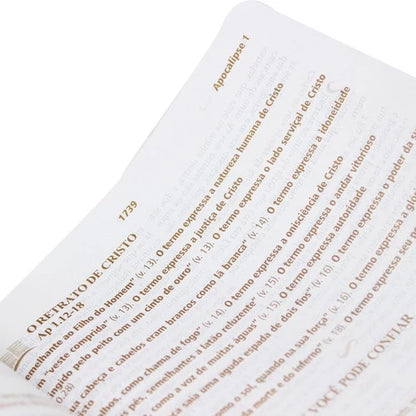 1739
Apocalipse 1
O RETRATO DE CRISTO
AP 1.12-18
emelhante ao Filho do Homem" (v. 13). O termo expressa a natureza humana de Cristo
"veste comprida" (v. 13). O termo expressa a justiça de Cristo
ngido pelo peito com um cinto de ouro" (v. 13). O termo expressa o lado serviçal de Cristo
ua cabeça e cabelos eram brancos como lã branca" (v. 14). O termo expressa a idoneidade
olhos, como chama de fogo" (v. 14). O termo expressa a onisciência de Cristo
pés, semelhantes a latão reluzente" (v. 15). O termo expressa o andar vitorioso
como a voz de muitas águas" (v. 15). O termo expressa autoridade
ca saía uma aguda espada de dois fios" (v. 16). O termo expressa o poder da
como o sol, quando na sua força" (v. 16). O termo expressa a gló
da morte e do inferno" (v. 18). O termo expressa seu p
VOCÊ PODE CONFIAR